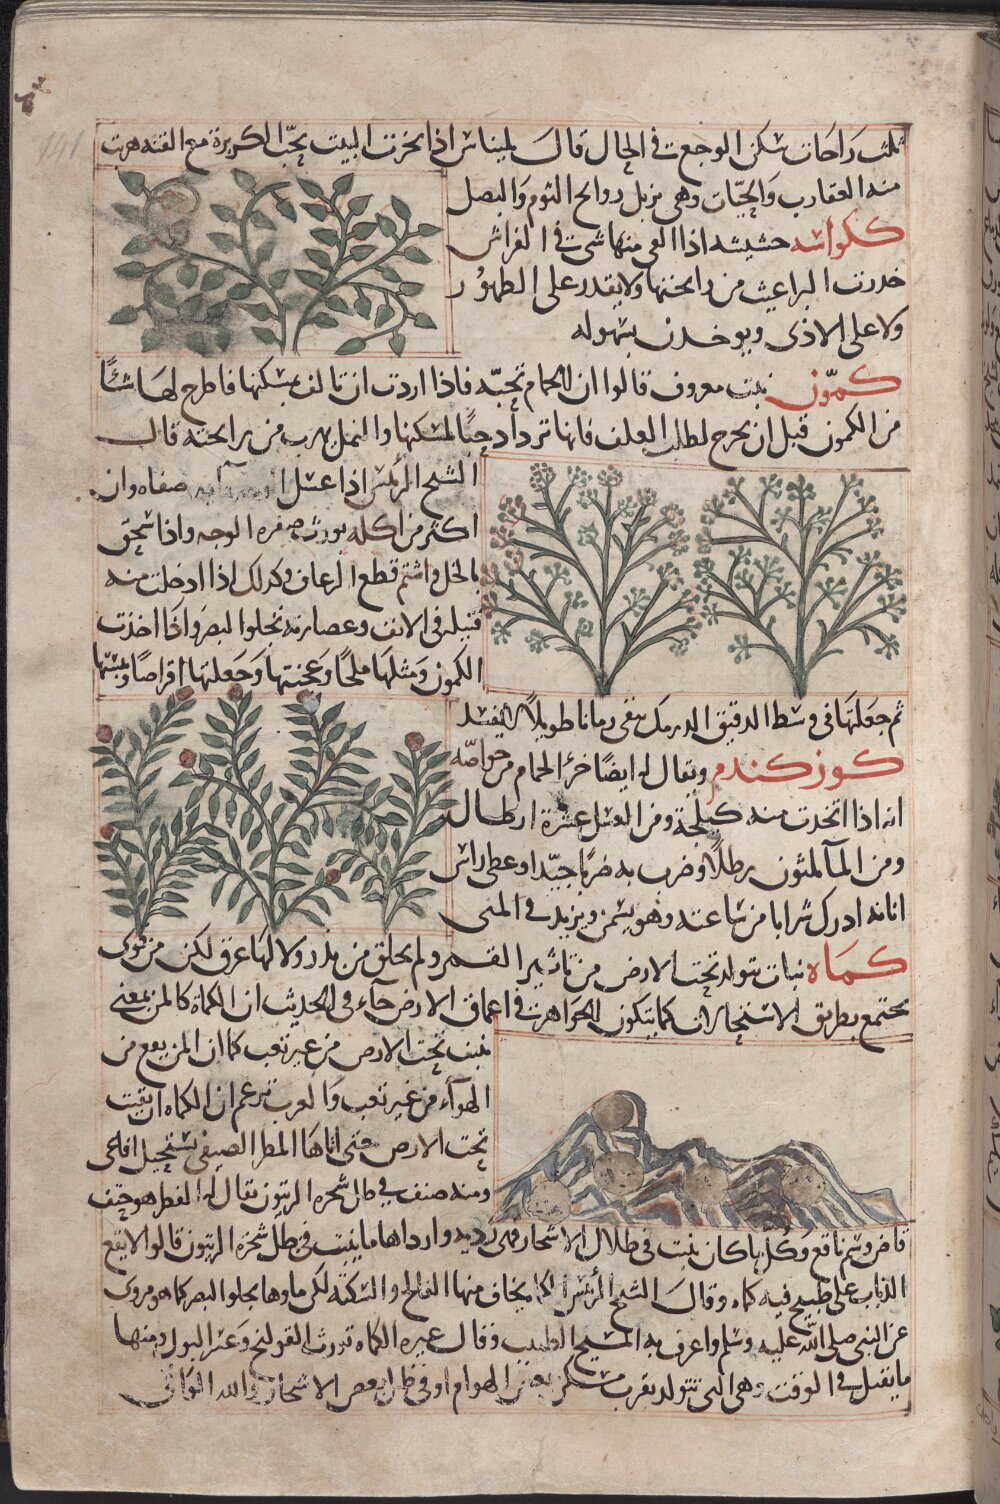 ثلث راحات سكن الوجع في الحال قال بليناس اذا بخرت البيت بحب الكزبرة مع القنه هرب
منه العقارب والحيات وهي يزيل روايح الثوم والبصل
ككواشه حشيشه اذا القي منها شي في الفراش
خدرت البراغيث من رايحتها ولا يقدر على الطهور
ولا على الاذى ويوخذن بسهوله
كمون نبت معروف قالوا ان الحمام تحبه فاذا اردت ان تالف مسكنها فاطرح لها شيئا
من الكمون قبل ان يخرج لطلب العلف فانها تزداد حبا لمسكنها والنمل يهرب من رايحته قال
الشيخ الرئيس اذا غسل الوجه بمايه صفاه وان
اكثر من اكله يورث صفره الوجه واذا سحق
بالخل واشتم قطع الرعاف وكذلك اذا ادخلت منه
فتيله في الانف وعصارته تجلوا البصر واذا اخذت
الكمون ومثلها ملحا وعجنتها وجعلتها اقراصا
ثم جعلتها في وسط الدقيق الدرمك يبقى زمانا طويلا لا يفسد
كوزكندم ويقال له ايضا خرء الحمام من خواصه
انه اذا اتخذت منه كيلجة ومن العسل عشرة ارطال
ومن المآ ثلثون رطلا وضرب به ضربا جيدا وغطي راس
انائه ادرك شرابا من ساعته وهو يسمن ويزيد في المنى
كماه نبات يتولد تحت الارض من تاثير القمر ولم يخلق من بذر ولا لها عرق لكن من قوى
يجتمع بطريق الاستحالات كما يتكون الجواهر في اعماق الارض جاء في الحديث ان الكماة كالمن بمعنى
ينبت تحت الارض من غير تعب كما ان المن يقع من
الهوآء من غير تعب والعرب تزعم ان الكماه ان بقيت
تحت الارض حتى اتاها المطر الصيفي تستحيل افاعى
ومنه صنف في ظل شجرة الزيتون يقال له الفطر هو حتف
قاض وسم ناقع وكل ما كان ينبت في ظلال الاشجار فهى رديه واردأها ما ينبت في ظل شجرة الزيتون قالوا لا يقع
الذباب على طبيخ فيه كماه وقال الشيخ الرئيس الكماه يخاف منها الفالج والسكته لكن ماوها يجلوا البصر كما هو مروى
عن النبي صلى الله عليه وسلم واعرف به المسيح الطبيب وقال غيره الكماه تورث القولنج وعسر البول ومنها
ما يقتل في الوقت وهي التي تتولد بقرب مسكن بعض الهوام او في ظل بعض الاشجار والله الواقي